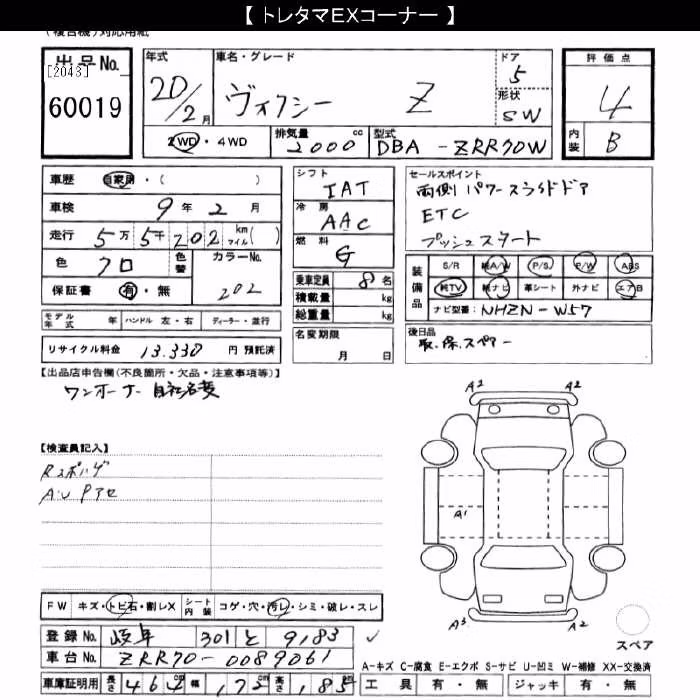 【 トレタマEXコーナー 】
(複合機)対応用紙
出品No.
[2043]
60019
年式 20/2月
車名・グレード ヴォクシー Z
ドア 5
形状 SW
評価点 4
内装 B
2WD・4WD
排気量 2000 cc
型式 DBA-ZRR70W
車歴 自家用・( )
車検 9年2月
走行 5万5千202 km マイル( )
色 クロ 色替 カラーNo. 202
保証書 有・無
モデル年式 年 ハンドル 左・右 ディーラー・並行
リサイクル料金 13.330 円預託済
シフト IAT
冷房 AAC
燃料 G
乗車定員 8名
積載量 kg
総重量 kg
名変期限 月 日
セールスポイント
両側パワースライドドア
ETC
プッシュスタート
装備品
S/R 純A/W P/S P/W ABS
純TV 純ナビ 革シート 外ナビ エアB
ナビ型番: NHZN-W57
後日品
取.保.スペアー
【出品店申告欄(不良箇所・欠品・注意事項等)】
ワンオーナー 自社名変
【検査員記入】
Rスポハゲ
A.U Pアセ
A2 A2
A1
A3 A2
スペア
FW キズ・トビ石・割レX シート内装 コゲ・穴・汚レ・シミ・破レ・スレ
登録No. 岐阜 301 と 9183
車台No. ZRR70-0089061
車庫証明用 長さ 464 cm 幅 172 cm 高さ 185 cm
A=キズ C=腐食 E=エクボ S=サビ U=凹ミ W=補修 XX=交換済
工具 有・無 ジャッキ 有・無